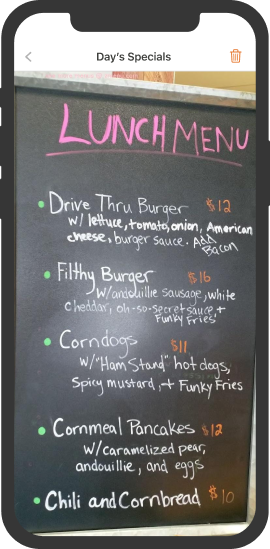 Day's Specials
LUNCH MENU
Drive Thru Burger $12
w/ lettuce, tomato, onion, American
cheese, burger sauce. Add
Bacon
Filthy Burger $16
w/andouille sausage, white
cheddar, oh-so-secret sauce +
Funky Fries
Corndogs $11
w/"Ham Stand" hot dogs,
Spicy mustard, + Funky Fries
Cornmeal Pancakes $12
w/caramelized pear,
andouille, and eggs
Chili and Cornbread $10